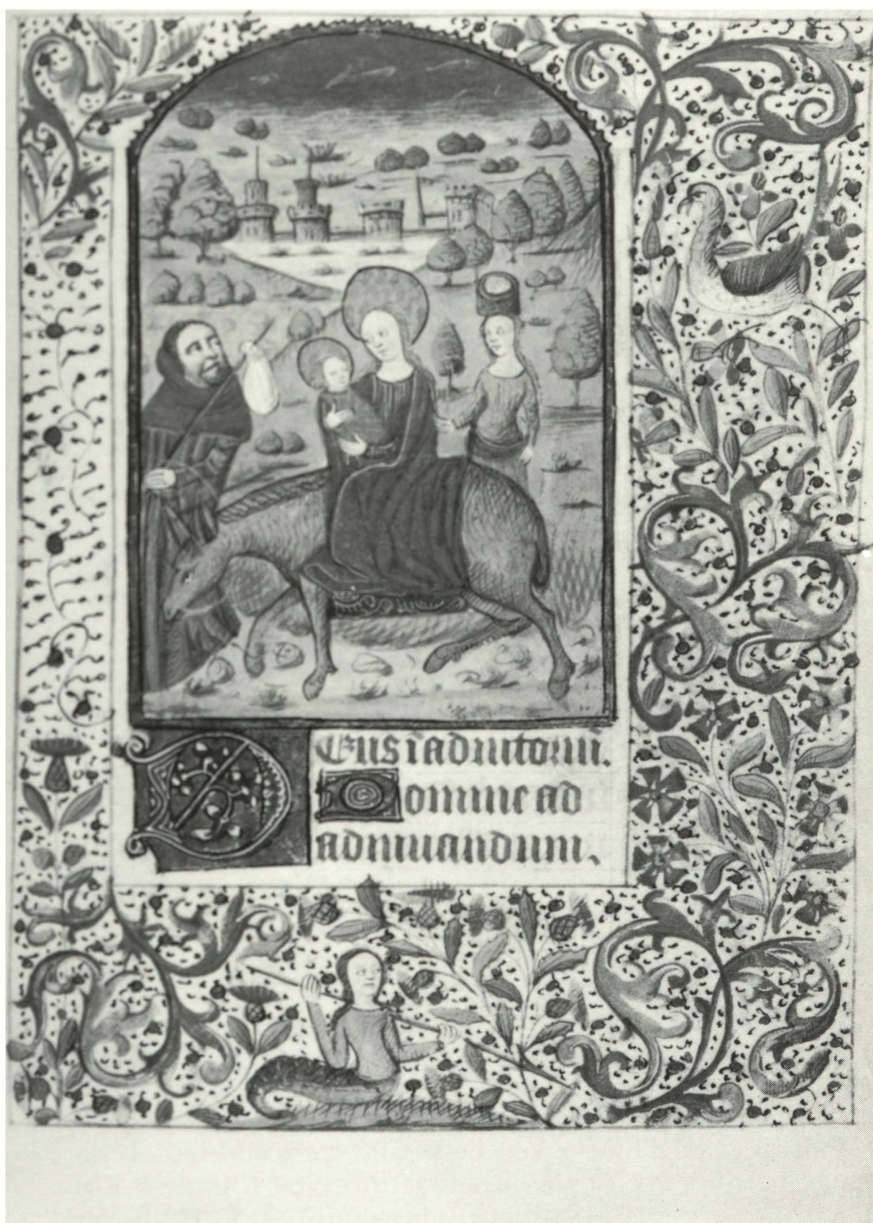 Deus i adiutoriu.
Domine ad
adiuuandum.